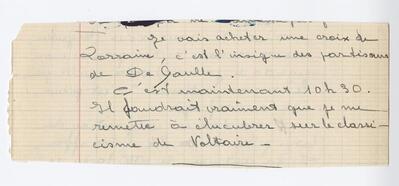 Je vais acheter une croix de
Lorraine, c'est l'insigne des partisans
de De Gaulle.
C'est maintenant 10h30.
Il faudrait vraiment que je me
remette à élucubrer sur le classi-
cisme de Voltaire -